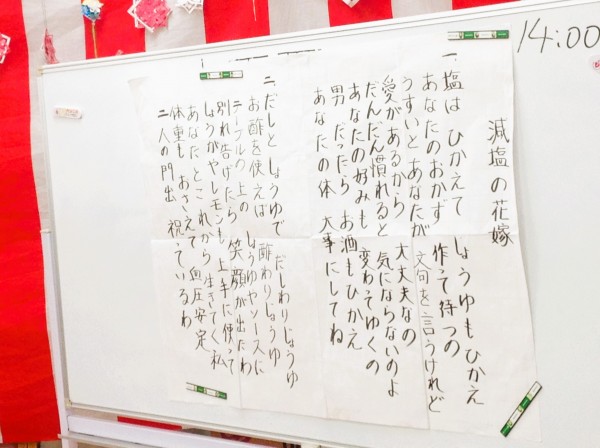 14:00
減塩の花嫁
一、塩は ひかえて しょうゆもひかえ
あなたのおかず 作って待つの
うすいとあなたが 文句を言うけれど
愛があるから 大丈夫なの
だんだん慣れると 気にならないのよ
あなたの好みも 変わってゆくの
男だったら お酒もひかえ
あなたの体 大事にしてね
二、だしとしょうゆで だしわりじょうゆ
お酢を使えば 酢わりしょうゆ
テーブルの上の しょうゆやソースに
別れ告げたら 笑顔が出たわ
しょうがやレモンも 上手に使って
あなたとこれから 生きてく私
体重もおさえて 血圧安定
二人の門出 祝っているわ